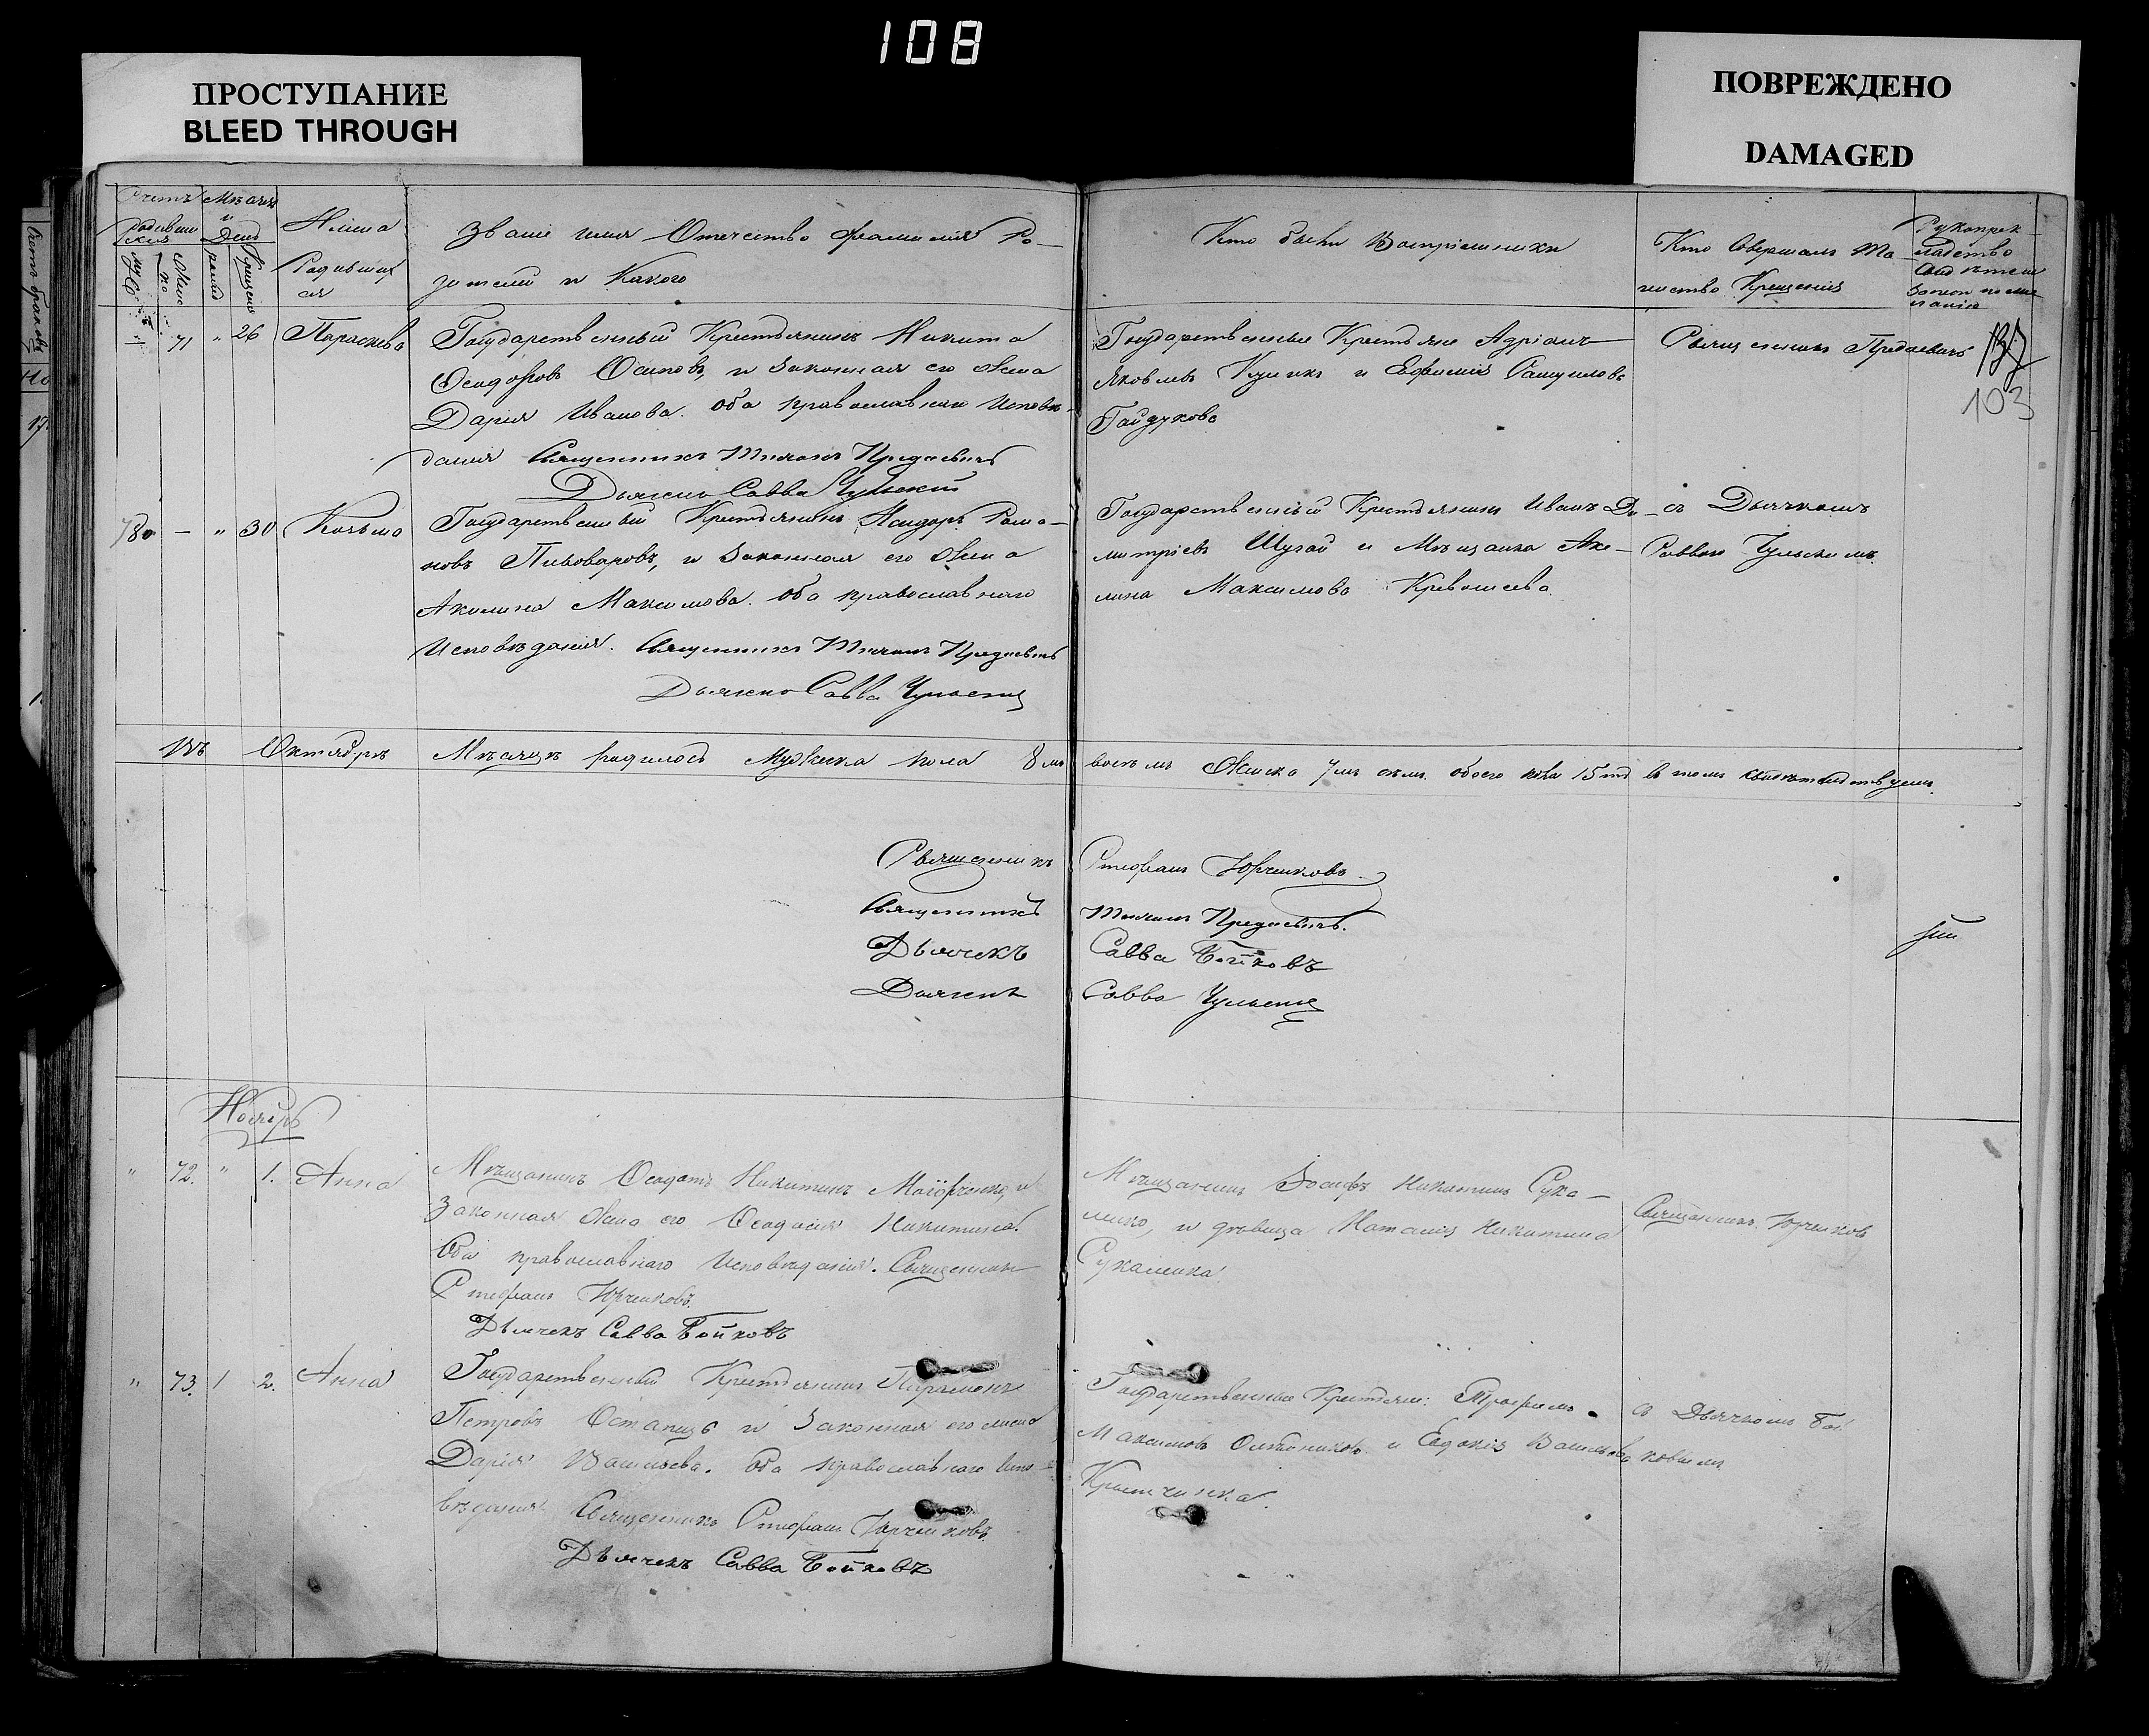 108
ПРОСТУПАНИЕ
BLEED THROUGH
ПОВРЕЖДЕНО
DAMAGED
Счетъ Мѣсяцъ и День
Имна Родившихся
Званіе имя Отчество фамилія Ро-
дителей и Какого
Кто были Воспріемники
Кто Совершалъ Та-
инство Крещенія
Рукоприк-
ладство
71 " 26 Параскева
Государственный Крестьянинъ Никита
Осиповъ, и законная его жена
Дарія Иванова. Оба православнаго Исповѣ-
данія Священникъ Тихонъ Предаевичъ
Дьячекъ Савва Чульскій
Государственные Крестьяне Адріанъ
Яковлевъ Куликъ и Евфимія
Гайдукова
Священникъ Предаевичъ
103
78 — " 30 Козьма
Государственный Крестьянинъ Исидоръ Рома-
новъ Пивоваровъ, и Законная его Жена
Акилина Максимова. Оба православнаго
Исповѣданія. Священникъ Тихонъ Предаевичъ
Дьячекъ Савва Чульскій
Государственный Крестьянинъ Иванъ Ди-
митріевъ Шугай и Мѣщанка Аки-
лина Максимова
съ Дьячкомъ
Саввою Чульскимъ.
Въ Октябрѣ Мѣсяцѣ родилось Мужеска пола 8 мь восемь Женска 7 мь семь обоего пола 15 ть в томъ свидѣтельствуемъ.
Священникъ Стефанъ Юрченковъ.
Священникъ Тихонъ Предаевичъ.
Дьячекъ Савва Бойковъ
Дьячекъ Савва Чульскій
Ноябрь
" 72. " 1. Анна
Мѣщанинъ Никитинъ и
Законная Жена его Никитина.
Оба православнаго Исповѣданія. Священникъ
Стефанъ Юрченковъ.
Дьячекъ Савва Бойковъ
Мѣщанинъ Іосифъ Никитинъ
и дѣвица Наталія Никитина
Священникъ Юрченковъ
" 73. 1 2. Анна
Государственный Крестьянинъ
Петровъ Остапецъ и Законная его жена
Дарія Васильева. Оба православнаго Испо-
вѣданія Священникъ Стефанъ Юрченковъ.
Дьячекъ Савва Бойковъ
Государственные Крестьяне: Трофимъ
Максимовъ и Евдокія Васильева
съ Дьячкомъ Бой-
ковымъ